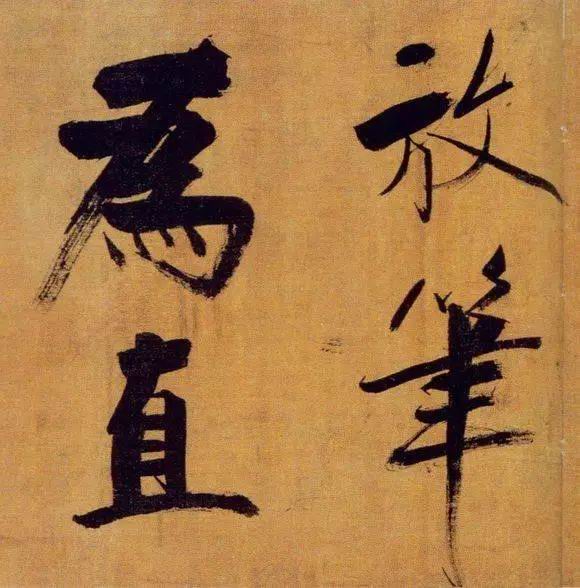 放筆
為直